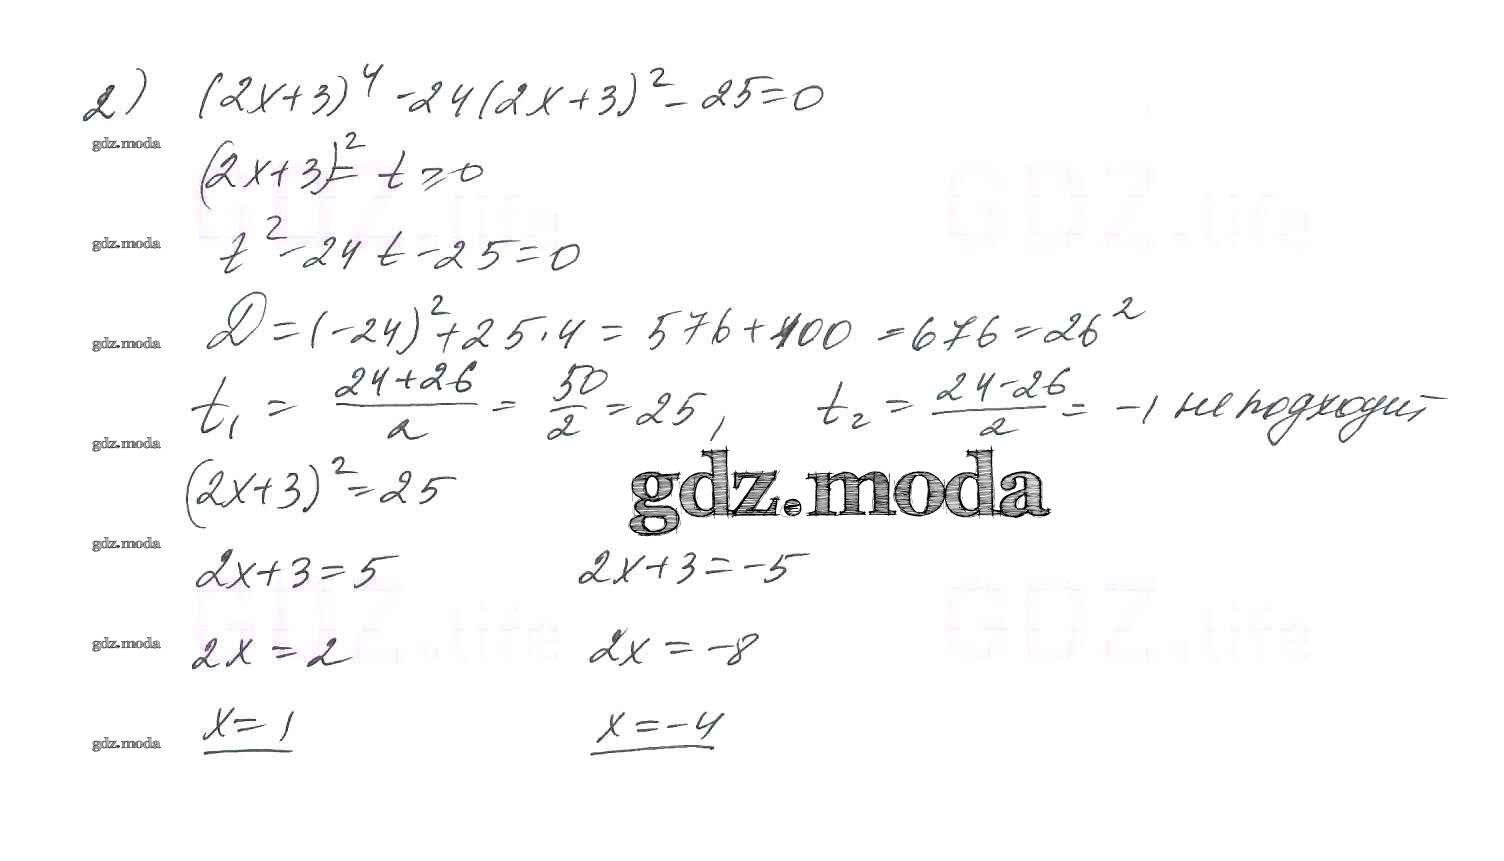 2) (2x+3)⁴-24(2x+3)²-25=0
gdz.moda
(2x+3)²=t⩾0
GDZ.life GDZ.life
gdz.moda
t²-24t-25=0
D=(-24)²+25·4=576+100=676=26²
gdz.moda
t₁=(24+26)/2=50/2=25, t₂=(24-26)/2=-1 не подходит
gdz.moda
(2x+3)²=25
gdz.moda
gdz.moda
2x+3=5 2x+3=-5
GDZ.life GDZ.life
gdz.moda
2x=2 2x=-8
x=1 x=-4
gdz.moda